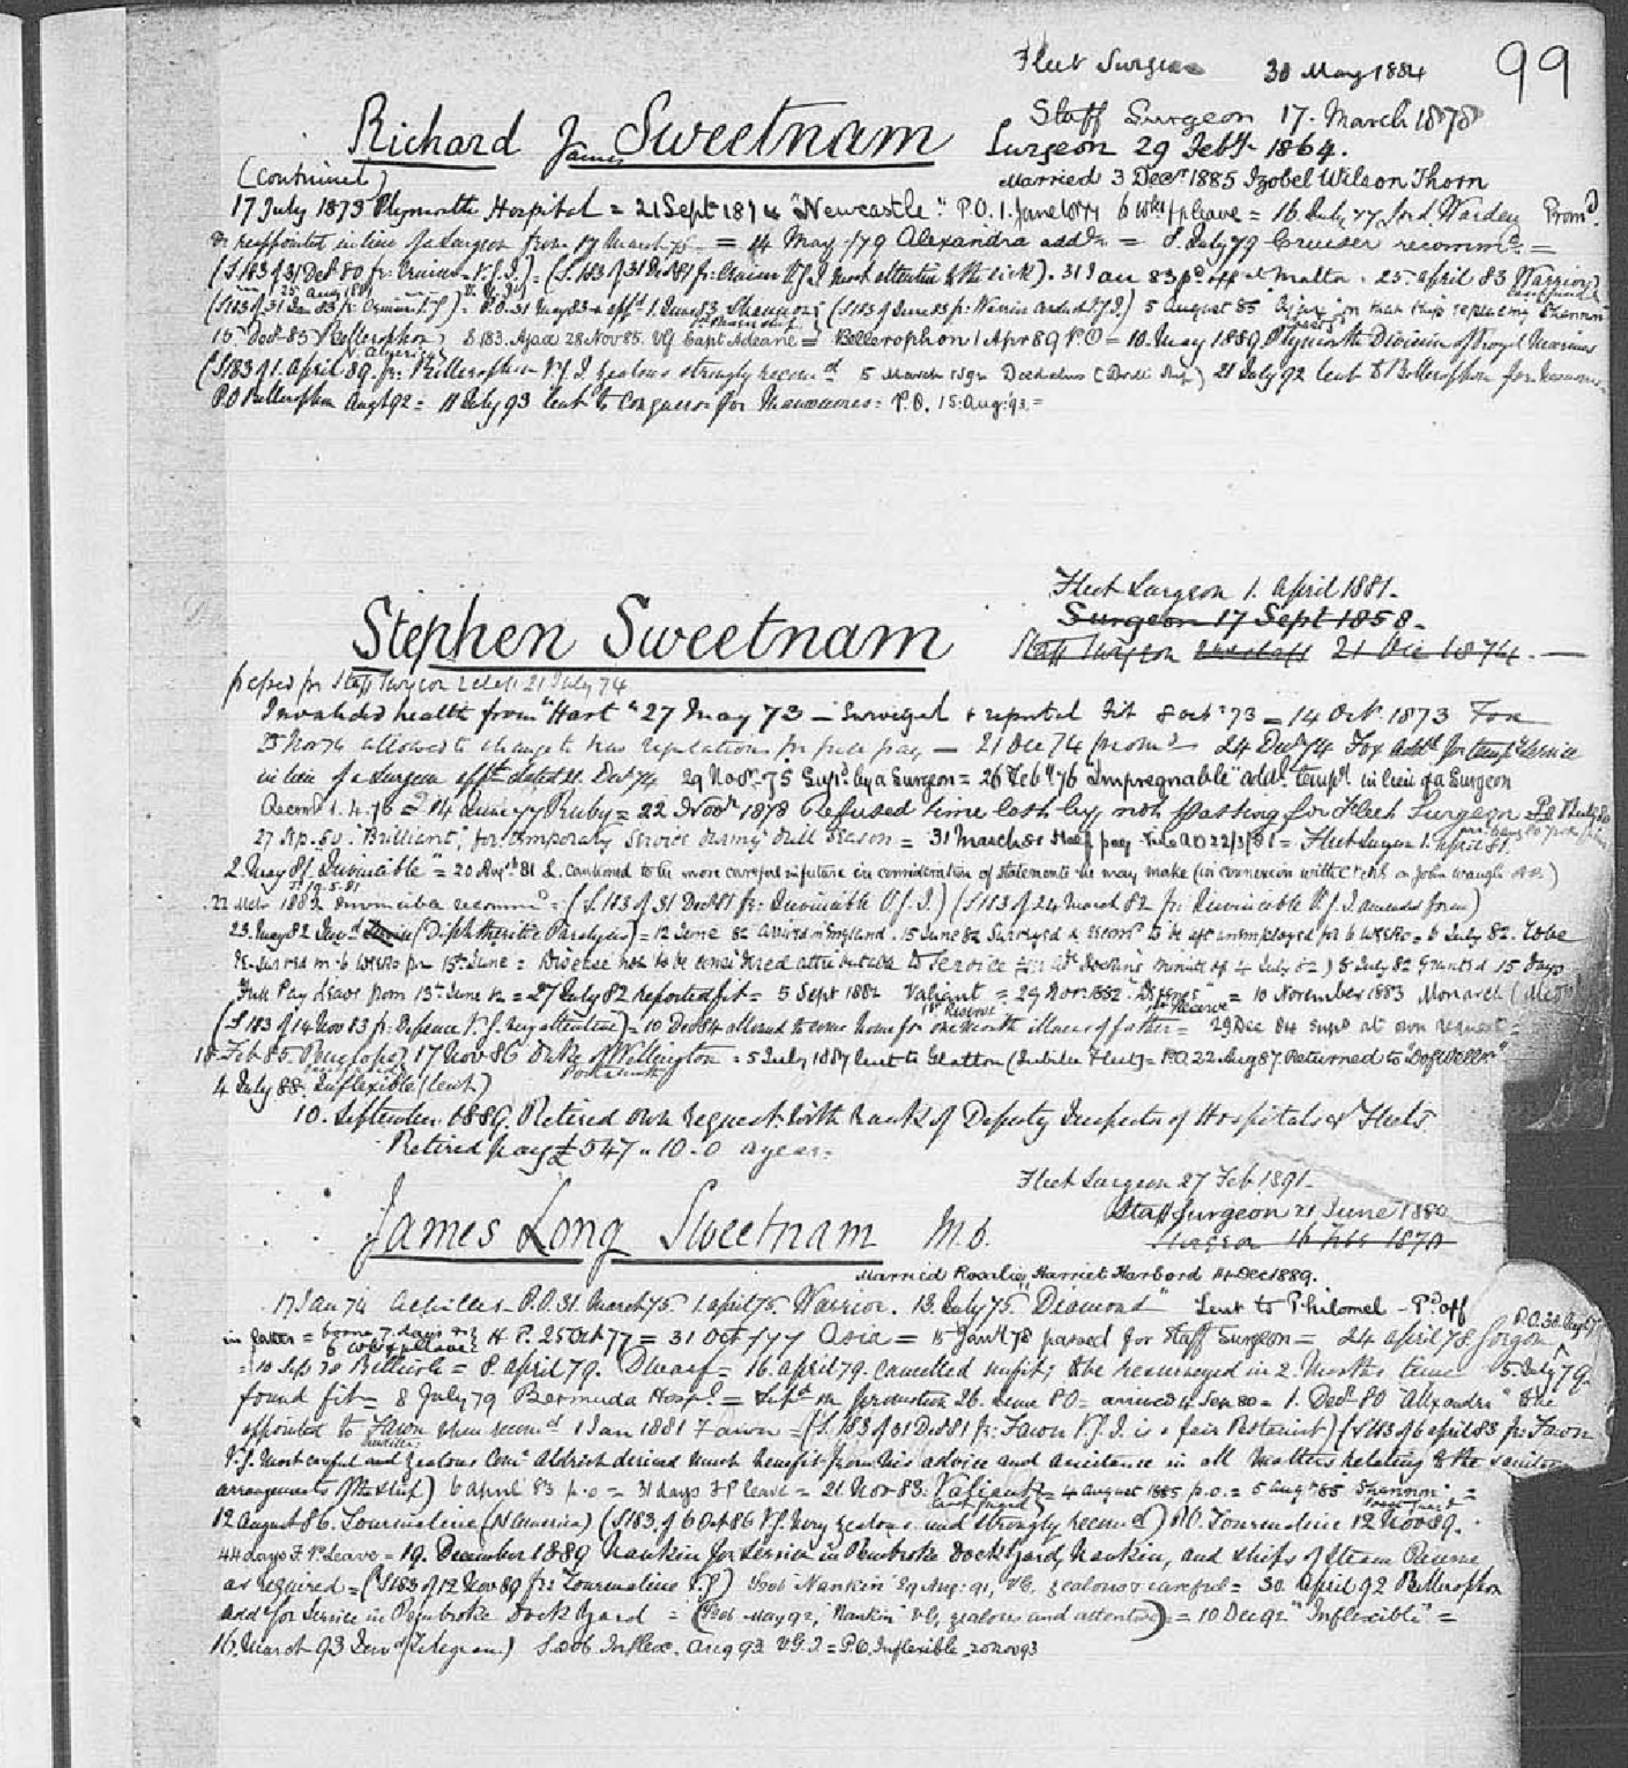 99
Fleet Surgeon 30 May 1884
Staff Surgeon 17. March 1878
Richard James Sweetnam Surgeon 29 Feby 1864.
(Continued) Married 3 Decr 1885 Izobel Wilson Thorn
17 July 1873 Plymouth Hospital = 21 Sept 1874 "Newcastle". P.O. 1. June 1877 6 wks fp leave = 16. July 77 Lord Warden Promd
& reappointed in lieu of a Surgeon from 17 March 78 = 14 May 79 Alexandra addl = 8. July 79 Cruiser recommd =
(S.183 of 31 Dec 80 fr: Cruiser V.G.I.) = (S.183 of 31 Dec 81 fr: Cruiser V.G.I. most attentive to the sick). 31 Jan 83 pd off at Malta. 25 April 83 Warrior
(S183 of 31 Jan 83 fr: Cruiser V.G.) = P.O. 31 May 83 & appd 1. June 83 Shannon (S183 of June 83 fr: Warrior V.G.I.) 5 August 85 Ajax in that ship replacing Shannon
15 Decr 85 Bellerophon S183. Ajax 28 Nov 85. VG Capt Adeane = Bellerophon 1 Apr 89 P.O = 10. May 1889 Plymouth Division of Royal Marines
N. America
(S183 of 1. April 89 fr: Bellerophon V.G.I. zealous strongly recomd 5 March 1892 Daedalus (Drill Ship) 21 July 92 lent to Bellerophon for
P.O Bellerophon Augt 92 = 11 July 93 lent to Conqueror for Manoeuvres: P.O. 15. Aug: 93 =
Fleet Surgeon 1. April 1881.
Surgeon 17 Sept 1858.
Stephen Sweetnam Staff Surgeon 21 Dec 1874.
passed for Staff Surgeon 21 July 74
Invalided health from "Hart" 27 May 73 - Surveyed & reported fit 8 Octr 73 = 14 Oct. 1873 Fox
25 Nov 74 allowed to change to new regulations for full pay - 21 Dec 74 promd 24 Decr 74 Fox addl for temp Service
in lieu of a Surgeon appt dated 21. Decr 74 29 Novr 75 Supd by a Surgeon = 26 Feby 76 "Impregnable" addl tempy in lieu of a Surgeon
Recomd 1.4.76 = 14 June 77 Ruby = 22 Novr 1878 Refused time lost by, not passing for Fleet Surgeon
27 Sep. 80 "Brilliant", for temporary service during drill season = 31 March 81 Half pay = Fleet Surgeon 1. April 81.
2. May 81 "Invincible" = 20 Augt 81 & Cautioned to be more careful in future in consideration of statements he may make (in connexion with on John Waugh
22 Mar 1882 Invincible recommd = (S.183 of 31 Dec 81 fr: Invincible V.G.I.) (S183 of 24 March 82 fr: Invincible V.G.I. amended form)
23. May 82 Invd (Diphtheritic Paralysis) = 12 June 82 arrived in England. 15 June 82 Surveyed & recomd to be unemployed for 6 weeks = 6 July 82. To be
Re-surveyed in 6 weeks from 15th June = Disease not to be considered attributable to Service minute of 4 July 82) 8 July 82 Granted 15 days
Full Pay Leave from 13th June 82 = 27 July 82 Reported fit = 5 Sept 1882 Valiant = 29 Nov. 1882. "Defence" = 10 November 1883 Monarch
1st Reserve 1st Reserve
(S183 of 14 Nov 83 fr: Defence V.G. very attentive) = 10 Dec 84 allowed to come home for one month illness of father = 29 Dec 84 Supd at own request =
18 Feb 85. Penelope) 17 Nov 86 Duke of Wellington = 5 July 1887 lent to Glatton (Jubilee Fleet) = P.O. 22 Aug 87. Returned to
Portsmouth
4 July 88 Inflexible (lent)
10. September 1889. Retired own request with Rank of Deputy Inspector of Hospitals & Fleets.
Retired pay £547 " 10 " 0 a year.
Fleet Surgeon 27 Feb 1891.
Staff Surgeon 21 June 1880
James Long Sweetnam M.D. Surgeon 16 Feb 1870
Married Rosalie Harriet Harbord 14 Dec 1889.
17 Jan 74 Achilles - P.O. 31. March 75. 1. April 75. Warrior. 13. July 75 "Diamond" Lent to Philomel - Pd off
in latter = borne 7 days H.P. 25 Oct 77 = 31 Oct 77 Asia = 15 Jany 78 passed for Staff Surgeon = 24 April 78. Gorgon
= 10 Sep 78 Bellisle = 8. April 79. Dwarf = 16. April 79. Cancelled unfit; to be resurveyed in 2. months time 5 July 79
found fit = 8 July 79 Bermuda Hospl = Supd on promotion 26. June 80 = arrived 4 Sep 80 = 1. Decr 80 "Alexandra" to be
appointed to Fawn when recomd 1 Jan 1881 Fawn = (S.183 of 31 Dec 81 fr: Fawn V.G.I. is a fair Botanist) (S183 of 6 April 83 fr: Fawn
V.G. Most careful and zealous Comr Aldrich derived much benefit from his advice and assistance in all matters relating to the sanitary
arrangements of the ship) 6 April 83 p.o = 31 days F P leave = 21. Nov 83. Valiant = 4 August 1885 p.o. = 5 Augt 85 Shannon =
12 August 86. Tourmaline (N America) (S183. of 6 Oct 86 V.G. Very zealous and strongly recomd) P.O. Tourmaline 12 Nov 89.
44 days F.P. Leave = 19. December 1889 Nankin for Service in Pembroke Dock Yard, Nankin, and ships of Steam Reserve
as required = (S183 of 12 Nov 89 fr: Tourmaline V.G) "Nankin" 29 Aug: 91, VG. zealous & careful = 30 April 92 Bellerophon
addl for Service in Pembroke Dock Yard = (May 92, "Nankin" VG, zealous and attentive) = 10 Dec 92 "Inflexible" =
16. March 93 Invd (Telegram) S.206 Inflex. Aug 93 V.G.I = P.O. Inflexible 20 Nov 93